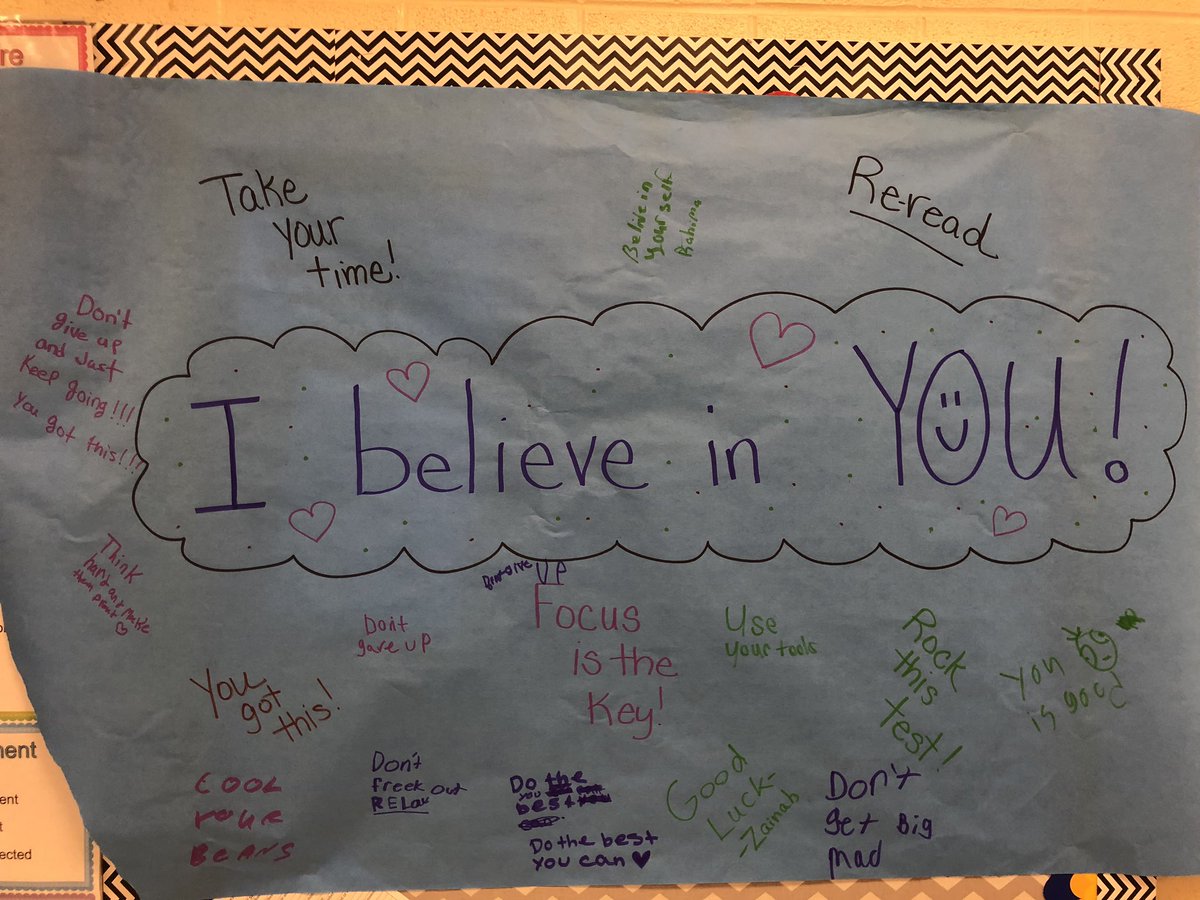 re
Take
your
time!
Belive in
your self
Rahima
Re-read
Don't
give up
and Just
Keep going!!!
You got this!!!
I believe in YOU!
Think
hard and make
them proud
Dont give UP
Focus
is the
Key!
Dont
gave up
Use
your tools
Rock
this
test!
You
is good
You
got
this!
COOL
your
BEANS
Don't
freek out
RELax
Do the
you
best
Do the best
you can
Good
Luck-
-Zainab
Don't
get Big
mad
ent
ected